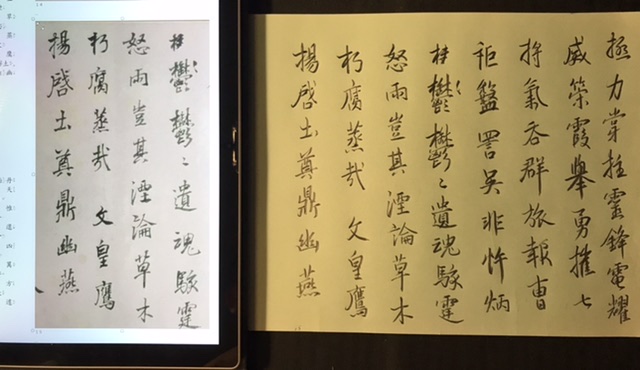 極力掌拄靈鋒電耀
威榮霞舉勇摧七
將氣吞群旅報曹
詎盤詈吳非忤炳
桂鬱鬱〻遺魂駭霆
怒雨豈其湮論草木
朽腐蒸哉 文皇鷹
揚啓土奠鼎幽燕
桂鬱鬱〻遺魂駭霆
怒雨豈其湮論草木
朽腐蒸哉 文皇鷹
揚啓土奠鼎幽燕